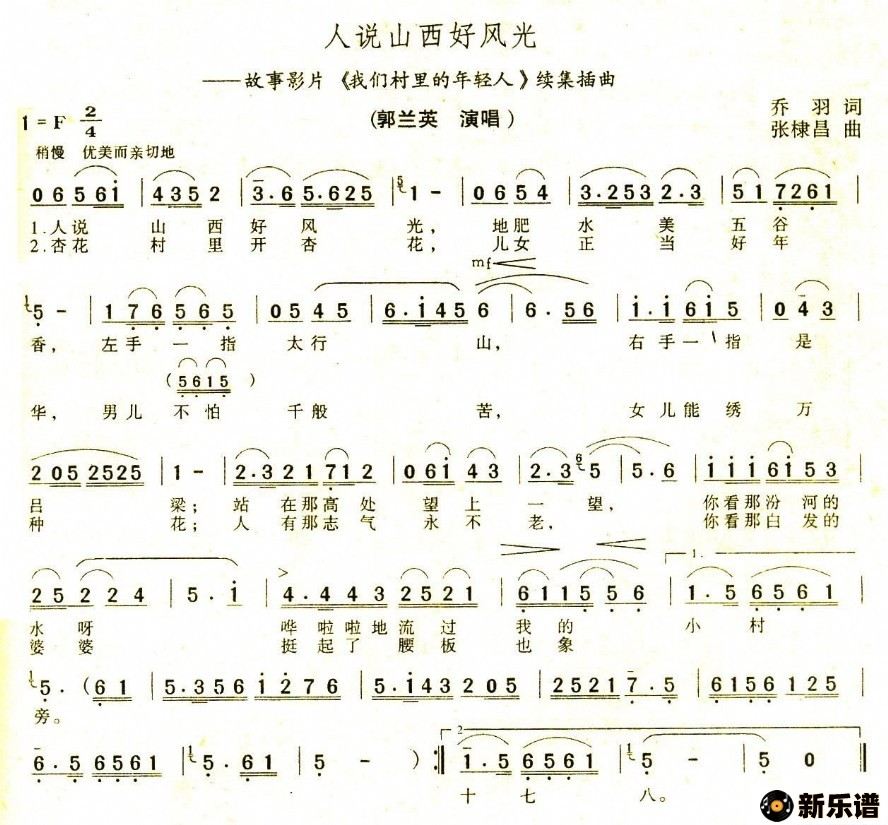 人说山西好风光
——故事影片《我们村里的年轻人》续集插曲
1=F 2/4
(郭兰英 演唱)
乔羽 词
张棣昌 曲
稍慢 优美而亲切地
0 6 5 6 1 | 4 3 5 2 | 3·6 5·6 2 5 | 5 1 - | 0 6 5 4 | 3·2 5 3 2·3 | 5 1 7 2 6 1 |
1.人说 山西好风 光, 地肥水美五谷
2.杏花 村里开杏 花, 儿女正当好年
mf
1 5 - | 1 7 6 5 6 5 | 0 5 4 5 | 6·1 4 5 6 | 6·5 6 | 1·1 6 1 5 | 0 4 3 |
香, 左手一指 太行 山, 右手一指 是
(5 6 1 5)
华, 男儿不怕 千般 苦, 女儿能绣 万
2 0 5 2 5 2 5 | 1 - | 2·3 2 1 7 1 2 | 0 6 1 4 3 | 2·3 6 5 | 5·6 | 1 1 1 6 1 5 3 |
吕 梁; 站在那高处 望上一 望, 你看那汾河的
种 花; 人有那志气 永不 老, 你看那白发的
1.
2 5 2 2 4 | 5·1 | 4·4 4 3 2 5 2 1 | 6 1 1 5 5 6 | 1·5 6 5 6 1 |
水呀 哗啦啦地流过 我的 小村
婆婆 挺起了腰板 也象
1 5·(6 1 | 5·3 5 6 1 2 7 6 | 5·1 4 3 2 0 5 | 2 5 2 1 7·5 | 6 1 5 6 1 2 5 |
旁。
2
6·5 6 5 6 1 | 1 5·6 1 | 5 - ) :‖ 1·5 6 5 6 1 | 1 5 - | 5 0 ‖
十七 八。
新乐谱